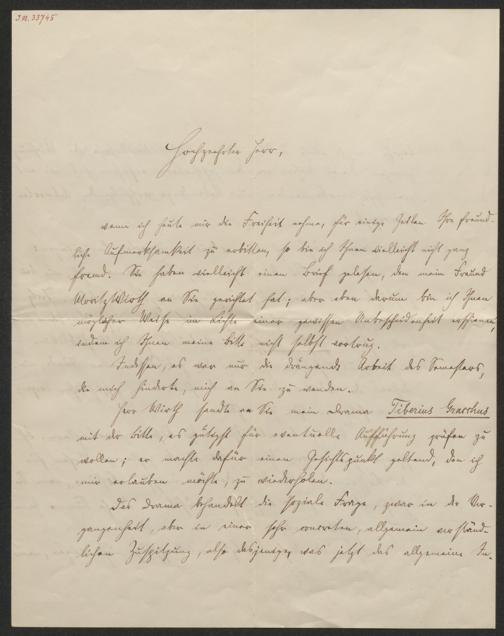 J.N. 33745
Hochgeehrter Herr,
wenn ich heute mir die Freiheit nehme, für einige Zeilen Ihre freund-
liche Aufmerksamkeit zu erbitten, so bin ich Ihnen vielleicht nicht ganz
fremd. Sie haben vielleicht einen Brief gelesen, den mein Freund
Moritz Wirth an Sie gerichtet hat; aber eben darum bin ich Ihnen
möglicher Weise im Lichte einer gewissen Unbescheidenheit erschienen,
indem ich Ihnen meine Bitte nicht selbst vortrug.
Indessen, es war nur die drängende Arbeit des Semesters,
die mich hinderte, mich an Sie zu wenden.
Herr Wirth sandte an Sie mein Drama Tiberius Gracchus
mit der Bitte, es gütigst für eventuelle Aufführung prüfen zu
wollen; er machte dafür einen Gesichtspunkt geltend, den ich
mir erlauben möchte, zu wiederholen.
Das Drama behandelt die soziale Frage, zwar in der Ver-
gangenheit, aber in einer sehr concreten, allgemein verständ-
lichen Zuspitzung, also dasjenige, was jetzt das allgemeine In-